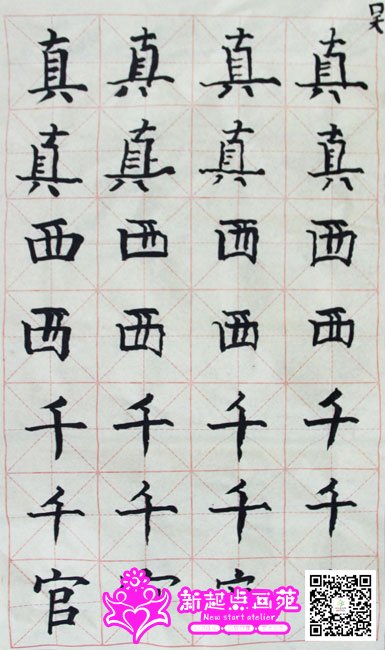 吴
真 真 真 真
真 真 真 真
西 西 西 西
西 西 西 西
千 千 千 千
千 千 千 千
官
新起点画苑
New start atelier